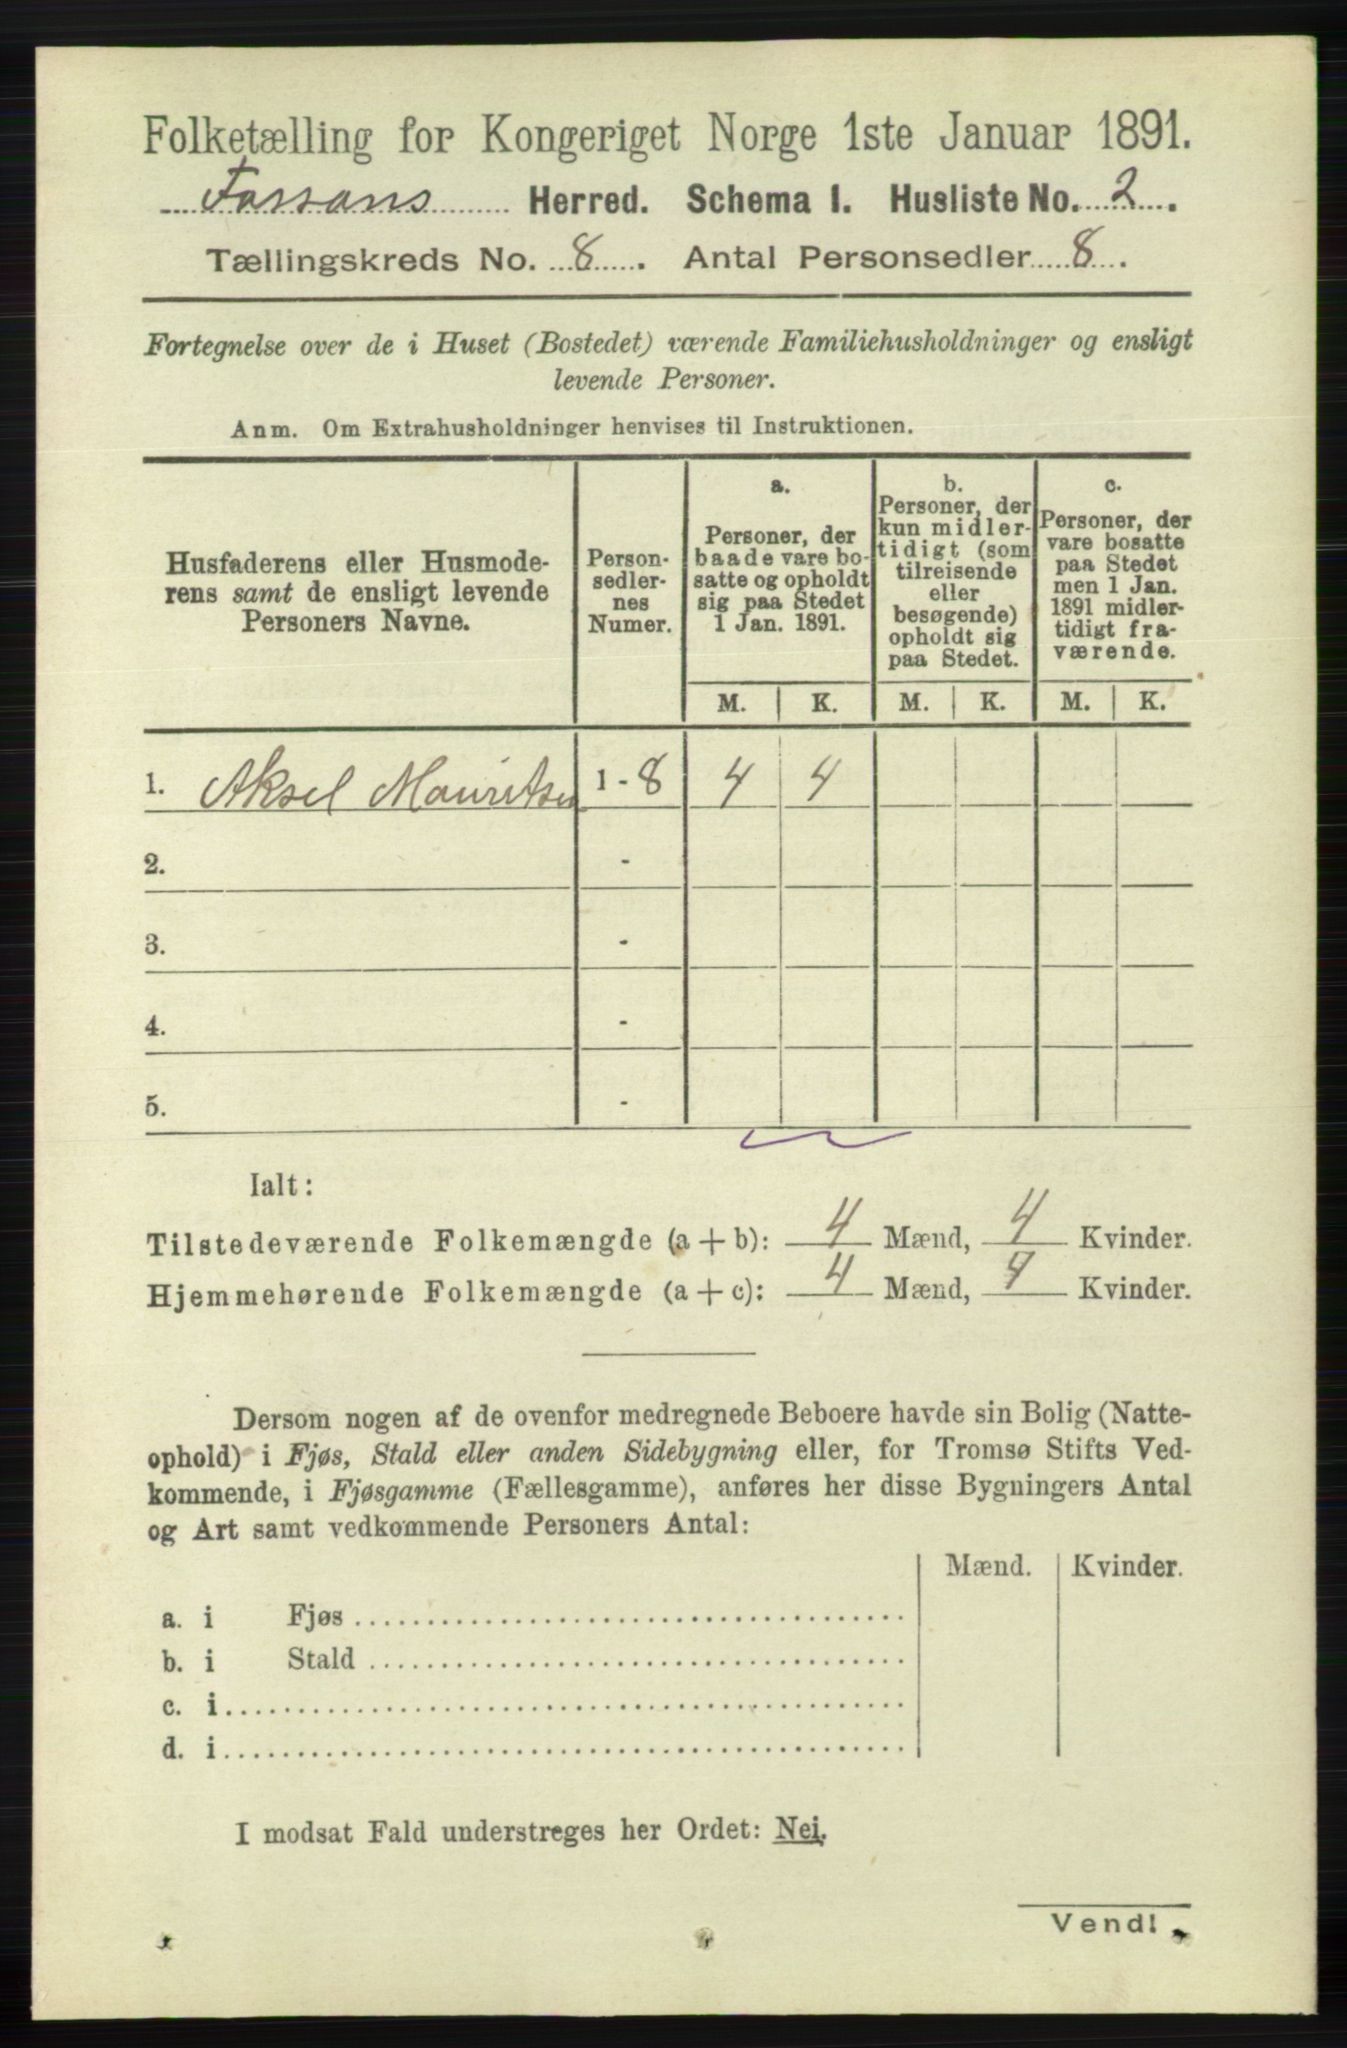 Folketælling for Kongeriget Norge 1ste Januar 1891.
Fossans Herred. Schema I. Husliste No. 2.
Tællingskreds No. 8. Antal Personsedler 8.
Fortegnelse over de i Huset (Bostedet) værende Familiehusholdninger og ensligt
levende Personer.
Anm. Om Extrahusholdninger henvises til Instruktionen.
Husfaderens eller Husmode-
rens samt de ensligt levende
Personers Navne.
Person-
sedler-
nes
Numer.
a.
Personer, der
baade vare bo-
satte og opholdt
sig paa Stedet
1 Jan. 1891.
b.
Personer, der
kun midler-
tidigt (som
tilreisende
eller
besøgende)
opholdt sig
paa Stedet.
c.
Personer, der
vare bosatte
paa Stedet
men 1 Jan.
1891 midler-
tidigt fra-
værende.
M. K. M. K. M. K.
1. Aksel Mauritsen 1 - 8 4 4
2. -
3. -
4. -
5. -
Ialt:
Tilstedeværende Folkemængde (a + b): 4 Mænd, 4 Kvinder.
Hjemmehørende Folkemængde (a + c): 4 Mænd, 4 Kvinder.
Dersom nogen af de ovenfor medregnede Beboere havde sin Bolig (Natte-
ophold) i Fjøs, Stald eller anden Sidebygning eller, for Tromsø Stifts Ved-
kommende, i Fjøsgamme (Fællesgamme), anføres her disse Bygningers Antal
og Art samt vedkommende Personers Antal:
Mænd. Kvinder.
a. i Fjøs
b. i Stald
c. i
d. i
I modsat Fald understreges her Ordet: Nei.
Vend!